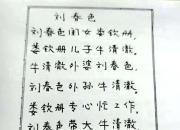 刘春色
刘春色闺女娄钦册,
娄钦册儿子牛清澈,
牛清澈外婆刘春色。
刘春色外孙牛清澈,
娄钦册专心忙工作,
刘春色带大牛清澈。